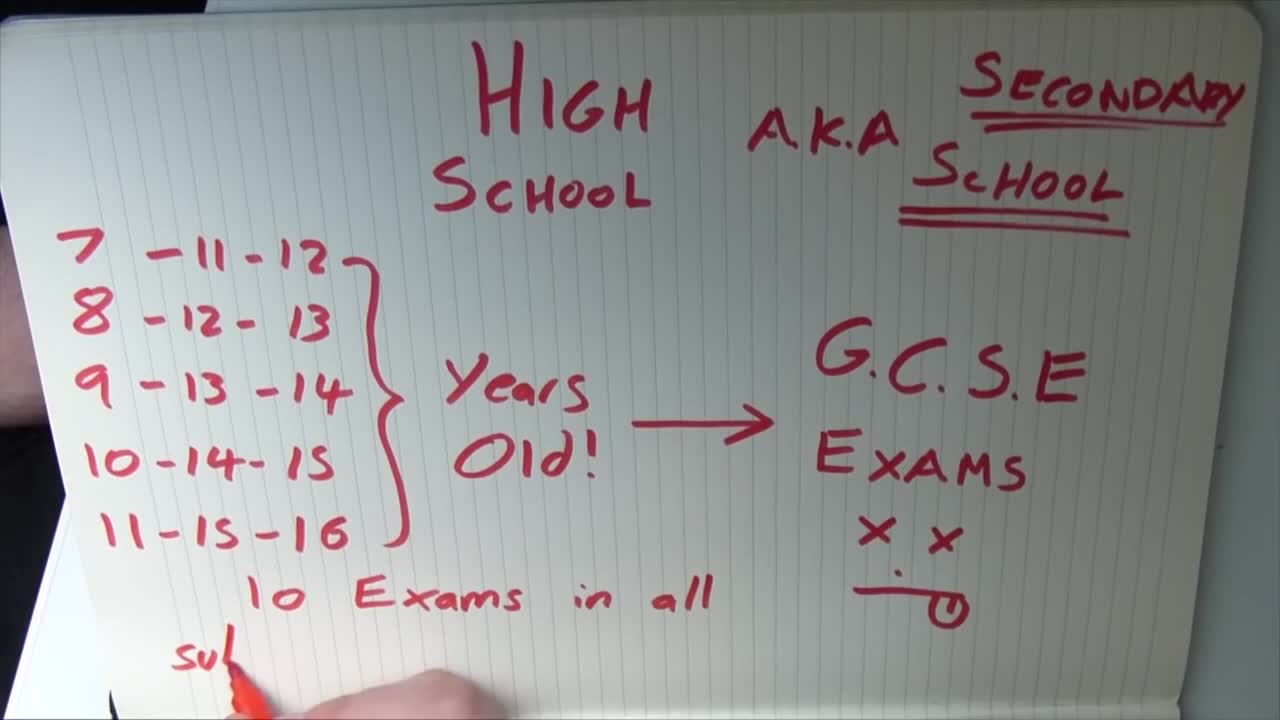 HIGH
SCHOOL
A.K.A
SECONDARY
SCHOOL
7 - 11 - 12
8 - 12 - 13
9 - 13 - 14
10 - 14 - 15
11 - 15 - 16
Years
Old!
G.C.S.E
EXAMS
10 Exams in all